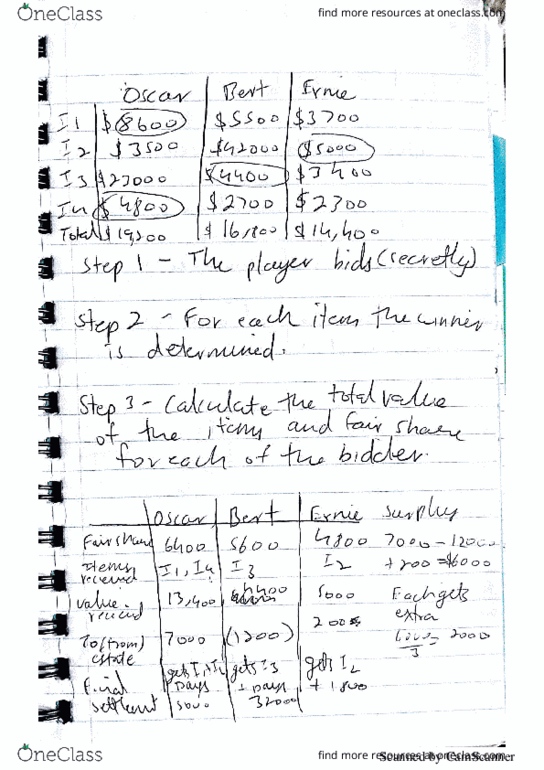 OneClass
find more resources at oneclass.com
Oscar Bert Ernie
I1 $8600 $5500 $3700
I2 $3500 $42000 $5000
I3 $23000 $4400 $3400
I4 $4800 $2700 $2300
Total $19,200 $16,800 $14,400
Step 1 - The player bids (secretly)
Step 2 - For each item the winner
is determined.
Step 3 - Calculate the total value
of the items and fair share
for each of the bidder.
Oscar Bert Ernie Surplus
Fair share 6400 5600 4800 7000 - 1200
Items I1, I4 I3 I2 + 200 = $6000
received
Value 13,400 4400 5000 Each gets
received 200 extra
To (from) 7000 (1200) 2000
estate 3
gets I1, I4 gets I3 gets I2
Final + 1800
settlement 5000 32000
OneClass
find more resources at oneclass.com
Scanned by CamScanner